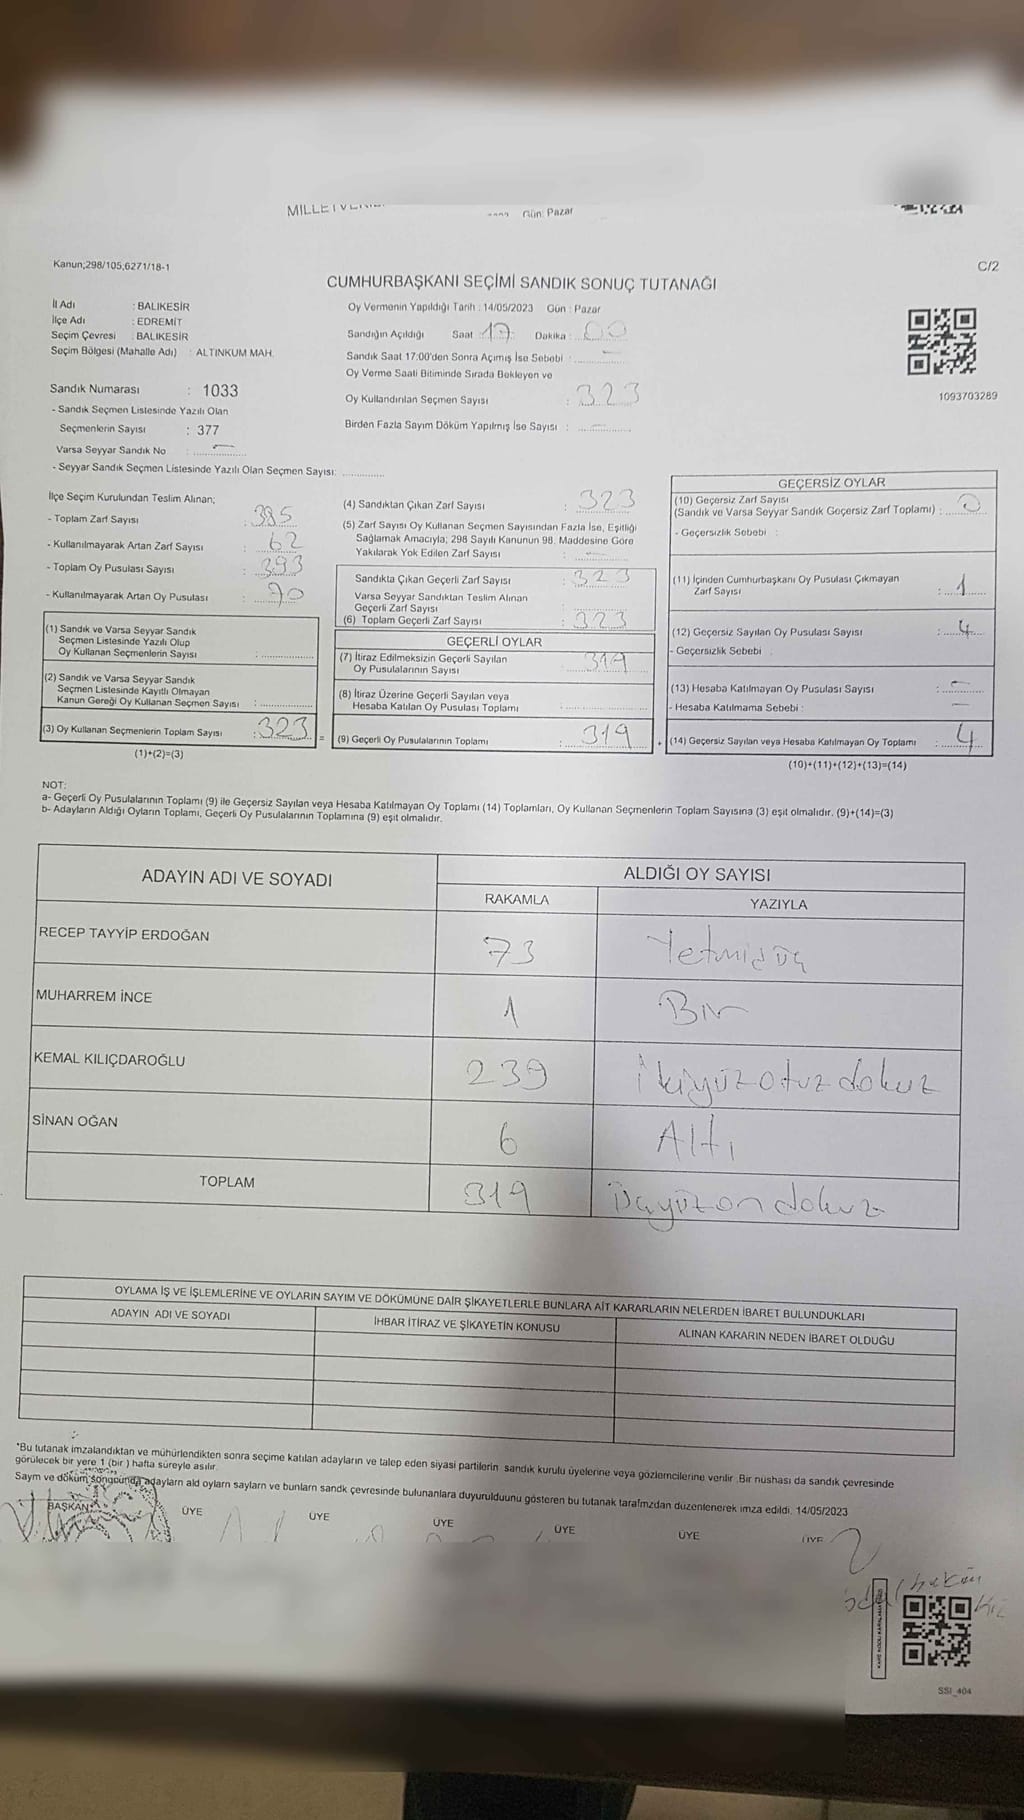 Gün: Pazar
Kanun;298/105,6271/18-1
C/2
CUMHURBAŞKANI SEÇİMİ SANDIK SONUÇ TUTANAĞI
İl Adı : BALIKESİR
İlçe Adı : EDREMİT
Seçim Çevresi : BALIKESİR
Seçim Bölgesi (Mahalle Adı) : ALTINKUM MAH.
Oy Vermenin Yapıldığı Tarih : 14/05/2023 Gün : Pazar
Sandığın Açıldığı Saat : 17 Dakika : 00
Sandık Saat 17:00'den Sonra Açımış İse Sebebi : —
Oy Verme Saati Bitiminde Sırada Bekleyen ve
Oy Kullandırılan Seçmen Sayısı : 323
Birden Fazla Sayım Döküm Yapılmış İse Sayısı : —
1093703289
Sandık Numarası : 1033
- Sandık Seçmen Listesinde Yazılı Olan
Seçmenlerin Sayısı : 377
Varsa Seyyar Sandık No : —
- Seyyar Sandık Seçmen Listesinde Yazılı Olan Seçmen Sayısı:
İlçe Seçim Kurulundan Teslim Alınan;
- Toplam Zarf Sayısı : 385
- Kullanılmayarak Artan Zarf Sayısı : 62
- Toplam Oy Pusulası Sayısı : 393
- Kullanılmayarak Artan Oy Pusulası : 70
(1) Sandık ve Varsa Seyyar Sandık
Seçmen Listesinde Yazılı Olup
Oy Kullanan Seçmenlerin Sayısı :
(2) Sandık ve Varsa Seyyar Sandık
Seçmen Listesinde Kayıtlı Olmayan
Kanun Gereği Oy Kullanan Seçmen Sayısı :
(3) Oy Kullanan Seçmenlerin Toplam Sayısı : 323
(1)+(2)=(3)
(4) Sandıktan Çıkan Zarf Sayısı : 323
(5) Zarf Sayısı Oy Kullanan Seçmen Sayısından Fazla İse, Eşitliği
Sağlamak Amacıyla, 298 Sayılı Kanunun 98. Maddesine Göre
Yakılarak Yok Edilen Zarf Sayısı : —
Sandıkta Çıkan Geçerli Zarf Sayısı : 323
Varsa Seyyar Sandıktan Teslim Alınan
Geçerli Zarf Sayısı :
(6) Toplam Geçerli Zarf Sayısı : 323
GEÇERLİ OYLAR
(7) İtiraz Edilmeksizin Geçerli Sayılan
Oy Pusulalarının Sayısı : 319
(8) İtiraz Üzerine Geçerli Sayılan veya
Hesaba Katılan Oy Pusulası Toplamı :
= (9) Geçerli Oy Pusulalarının Toplamı : 319
GEÇERSİZ OYLAR
(10) Geçersiz Zarf Sayısı
(Sandık ve Varsa Seyyar Sandık Geçersiz Zarf Toplamı) : 0
- Geçersizlik Sebebi :
(11) İçinden Cumhurbaşkanı Oy Pusulası Çıkmayan
Zarf Sayısı : 1
(12) Geçersiz Sayılan Oy Pusulası Sayısı : 4
- Geçersizlik Sebebi :
(13) Hesaba Katılmayan Oy Pusulası Sayısı : —
- Hesaba Katılmama Sebebi : —
+ (14) Geçersiz Sayılan veya Hesaba Katılmayan Oy Toplamı : 4
(10)+(11)+(12)+(13)=(14)
NOT:
a- Geçerli Oy Pusulalarının Toplamı (9) ile Geçersiz Sayılan veya Hesaba Katılmayan Oy Toplamı (14) Toplamları, Oy Kullanan Seçmenlerin Toplam Sayısına (3) eşit olmalıdır. (9)+(14)=(3)
b- Adayların Aldığı Oyların Toplamı, Geçerli Oy Pusulalarının Toplamına (9) eşit olmalıdır.
ADAYIN ADI VE SOYADI
ALDIĞI OY SAYISI
RAKAMLA YAZIYLA
RECEP TAYYİP ERDOĞAN 73 Yetmişüç
MUHARREM İNCE 1 Bir
KEMAL KILIÇDAROĞLU 239 ikiyüzotuzdokuz
SİNAN OĞAN 6 Altı
TOPLAM 319 Üçyüzondokuz
OYLAMA İŞ VE İŞLEMLERİNE VE OYLARIN SAYIM VE DÖKÜMÜNE DAİR ŞİKAYETLERLE BUNLARA AİT KARARLARIN NELERDEN İBARET BULUNDUKLARI
ADAYIN ADI VE SOYADI İHBAR İTİRAZ VE ŞİKAYETİN KONUSU ALINAN KARARIN NEDEN İBARET OLDUĞU
*Bu tutanak imzalandıktan ve mühürlendikten sonra seçime katılan adayların ve talep eden siyasi partilerin sandık kurulu üyelerine veya gözlemcilerine verilir. Bir nüshası da sandık çevresinde
görülecek bir yere 1 (bir ) hafta süreyle asılır.
Saym ve döküm songounda adaylarn ald oylarn saylarn ve bunlarn sandk çevresinde bulunanlara duyurulduunu gösteren bu tutanak tarafmzdan düzenlenerek imza edildi. 14/05/2023
BAŞKAN ÜYE ÜYE ÜYE ÜYE ÜYE ÜYE
SSI_404